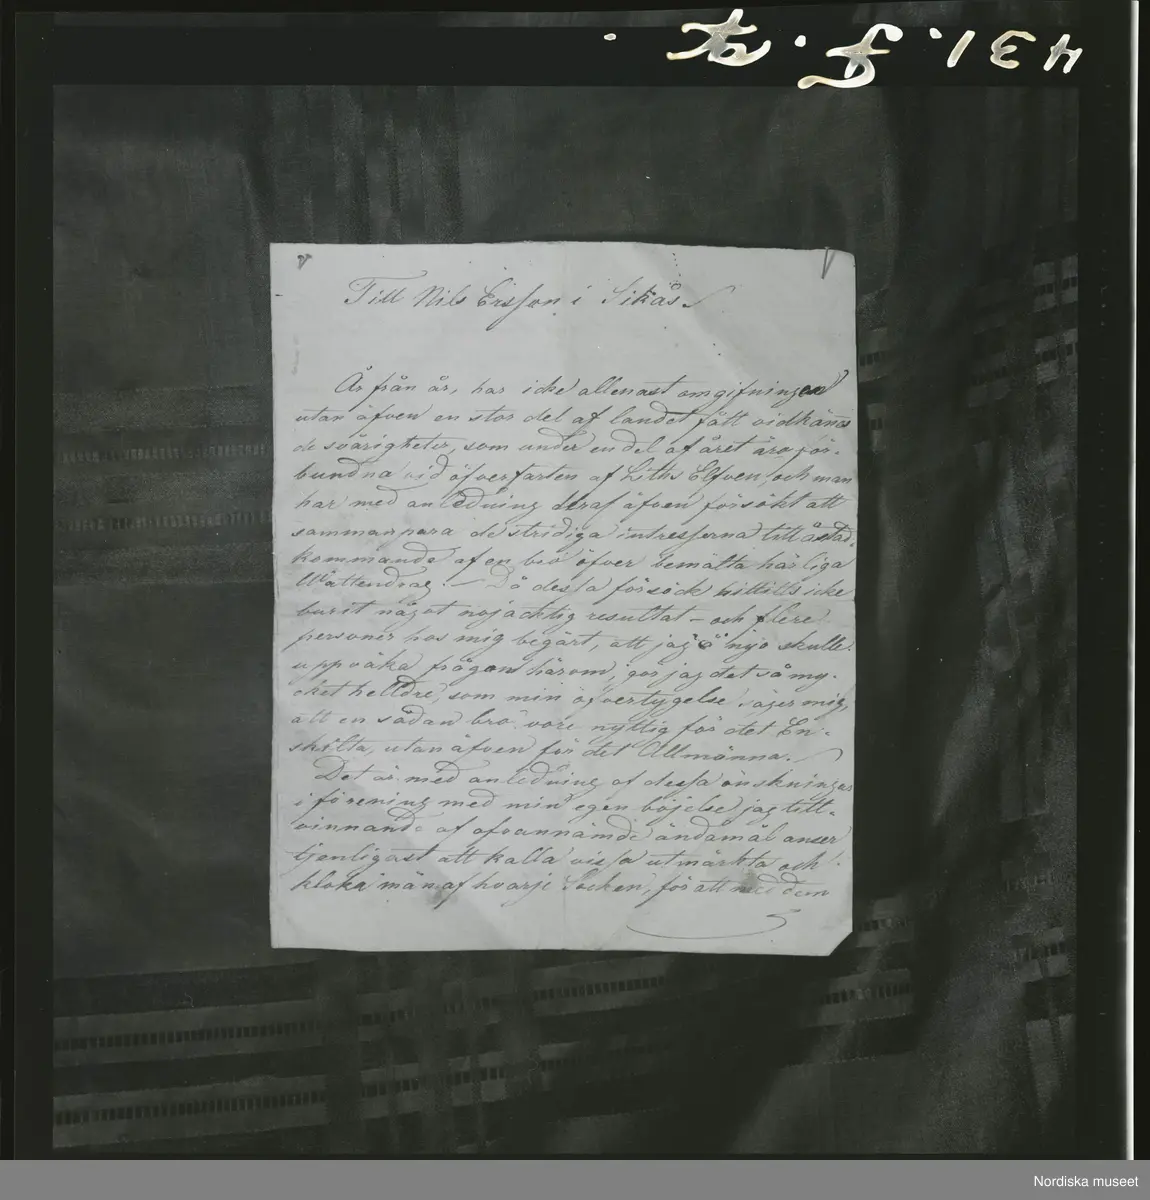 431. F. A.
Till Nils Ersson i Sikås
År från år, har icke allenast omgifningen
utan äfven en stor del af landet fått vidkännas
de svårigheter, som under en del af året äro för-
bundna vid öfverfarten af Liths Elfven, och man
har med anledning deraf äfven försökt att
sammanpara de stridiga intresserna till åstad-
kommande af en bro öfver bemälta härliga
Wattendrag. – Då dessa försök hittills icke
burit något nöjacktig resultat – och flere
personer hos mig begärt, att jag å nyo skulle
uppväka frågan härom, gör jag det så my-
cket helldre, som min öfvertygelse säger mig,
att en sådan bro vore nyttig för det En-
skilta, utan äfven för det Allmänna. –
Det är med anledning af dessa önskningar
i förening med min egen böjelse jag till
vinnande af ofvannämde ändamål anser
tjenligast att kalla vissa utmärkta och
kloka män af hvarje Socken, för att med dem
Nordiska museet